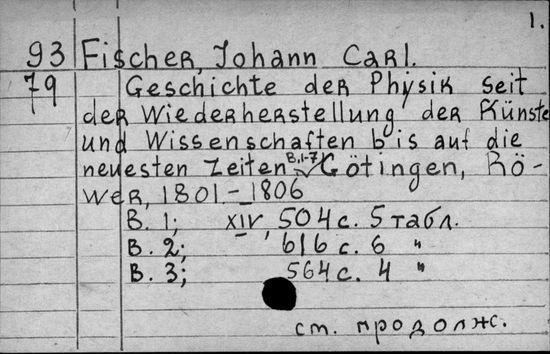 1.
93 Fischer, Johann Carl.
79 Geschichte der Physik seit
der Wiederherstellung der Künste
und Wissenschaften bis auf die
neuesten Zeiten B.1-7 Götingen, Rö-
wer, 1801-1806
B. 1; XIV, 504 с. 5 табл.
B. 2; 616 с. 6 "
B. 3; 564 с. 4 "
см. продолж.